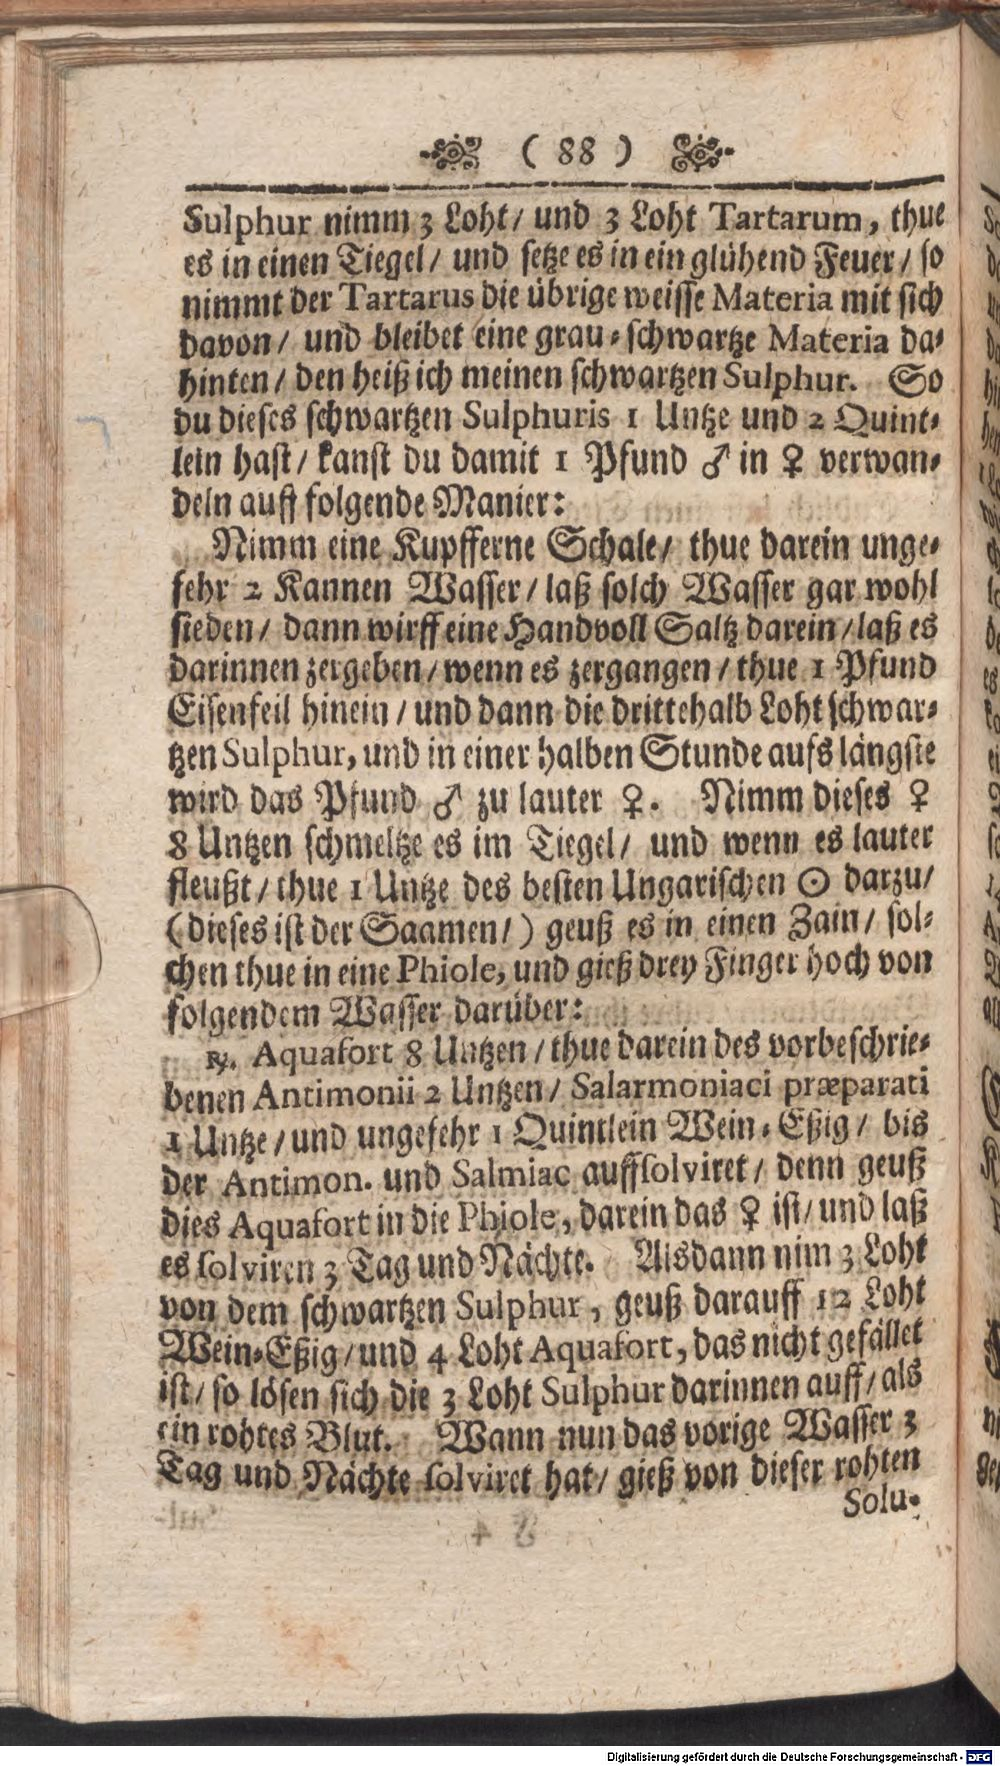 ( 88 )
Sulphur nimm 3 Loht/ und 3 Loht Tartarum, thue
es in einen Tiegel/ und setze es in ein glühend Feuer/ so
nimmt der Tartarus die übrige weisse Materia mit sich
davon/ und bleibet eine grau-schwartze Materia da-
hinten/ den heiß ich meinen schwartzen Sulphur. So
du dieses schwartzen Sulphuris 1 Untze und 2 Quint-
lein hast/ kanst du damit 1 Pfund ♂ in ♀ verwan-
deln auff folgende Manier:
Nimm eine Kupfferne Schale/ thue darein unge-
fehr 2 Kannen Wasser/ laß solch Wasser gar wohl
sieden/ dann wirff eine Handvoll Saltz darein/ laß es
darinnen zergeben/ wenn es zergangen/ thue 1 Pfund
Eisenfeil hinein/ und dann die drittehalb Loht schwar-
tzen Sulphur, und in einer halben Stunde aufs längste
wird das Pfund ♂ zu lauter ♀. Nimm dieses ♀
8 Untzen schmeltze es im Tiegel/ und wenn es lauter
fleußt/ thue 1 Untze des besten Ungarischen ☉ darzu/
(dieses ist der Saamen/) geuß es in einen Zain/ sol-
chen thue in eine Phiole, und gieß drey Finger hoch von
folgendem Wasser darüber:
℞. Aquafort 8 Untzen/ thue darein des vorbeschrie-
benen Antimonii 2 Untzen/ Salarmoniaci præparati
1 Untze/ und ungefehr 1 Quintlein Wein-Eßig/ bis
der Antimon. und Salmiac auffsolviret/ denn geuß
dies Aquafort in die Phiole, darein das ♀ ist/ und laß
es solviren 3 Tag und Nächte. Alsdann nim 3 Loht
von dem schwartzen Sulphur, geuß darauff 12 Loht
Wein-Eßig/ und 4 Loht Aquafort, das nicht gefället
ist/ so lösen sich die 3 Loht Sulphur darinnen auff/ als
ein rohtes Blut. Wann nun das vorige Wasser 3
Tag und Nächte solviret hat/ gieß von dieser rohten
Solu-
Digitalisierung gefördert durch die Deutsche Forschungsgemeinschaft - DFG